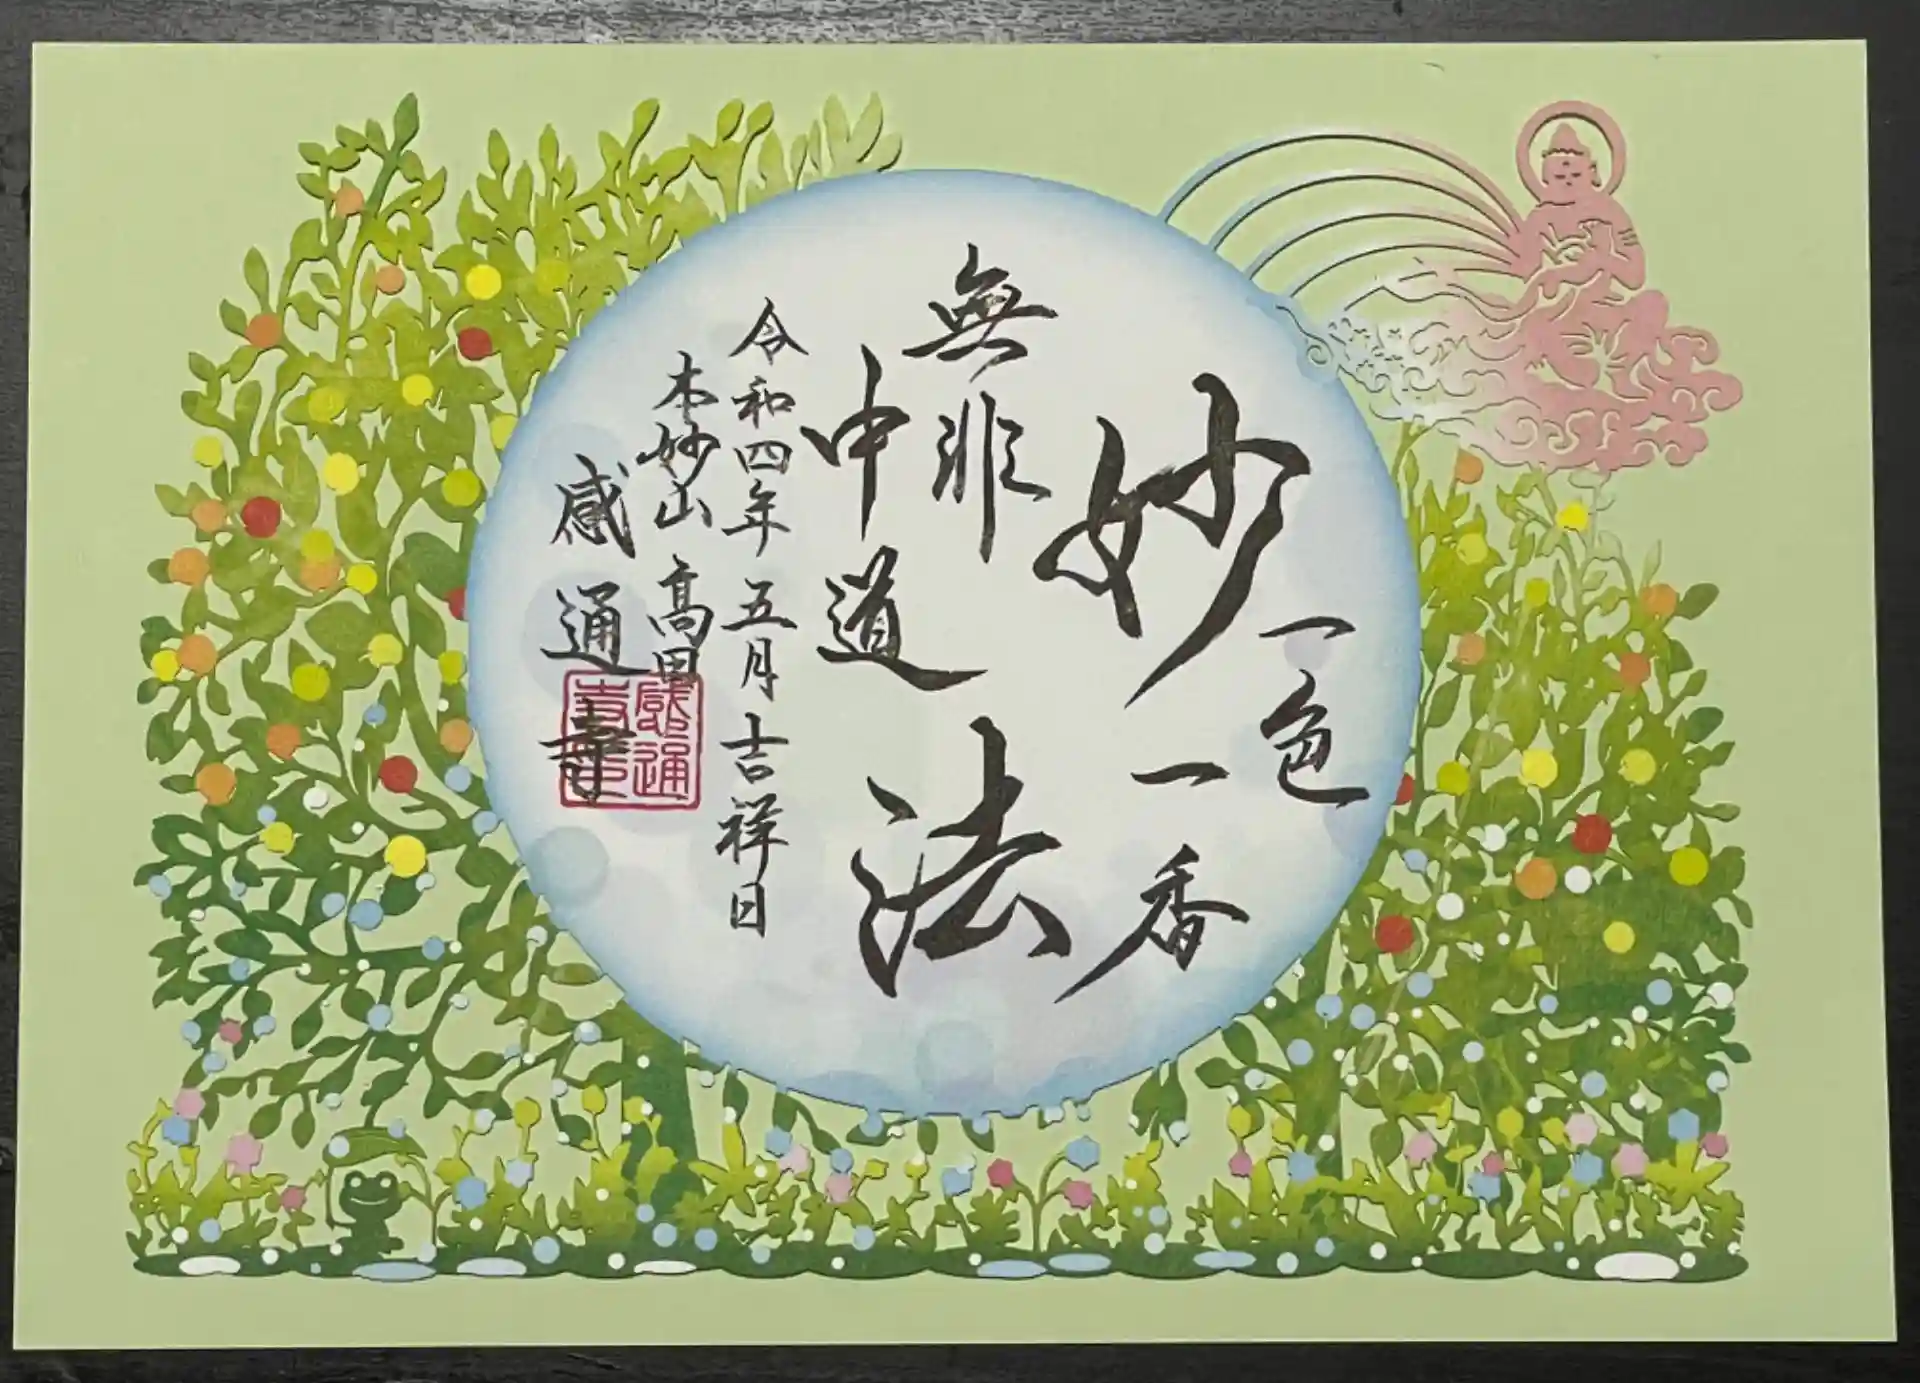 一色
妙法
一香
無非
中道
令和四年五月吉祥日
本妙山 高田
感通寺
感通
寺印